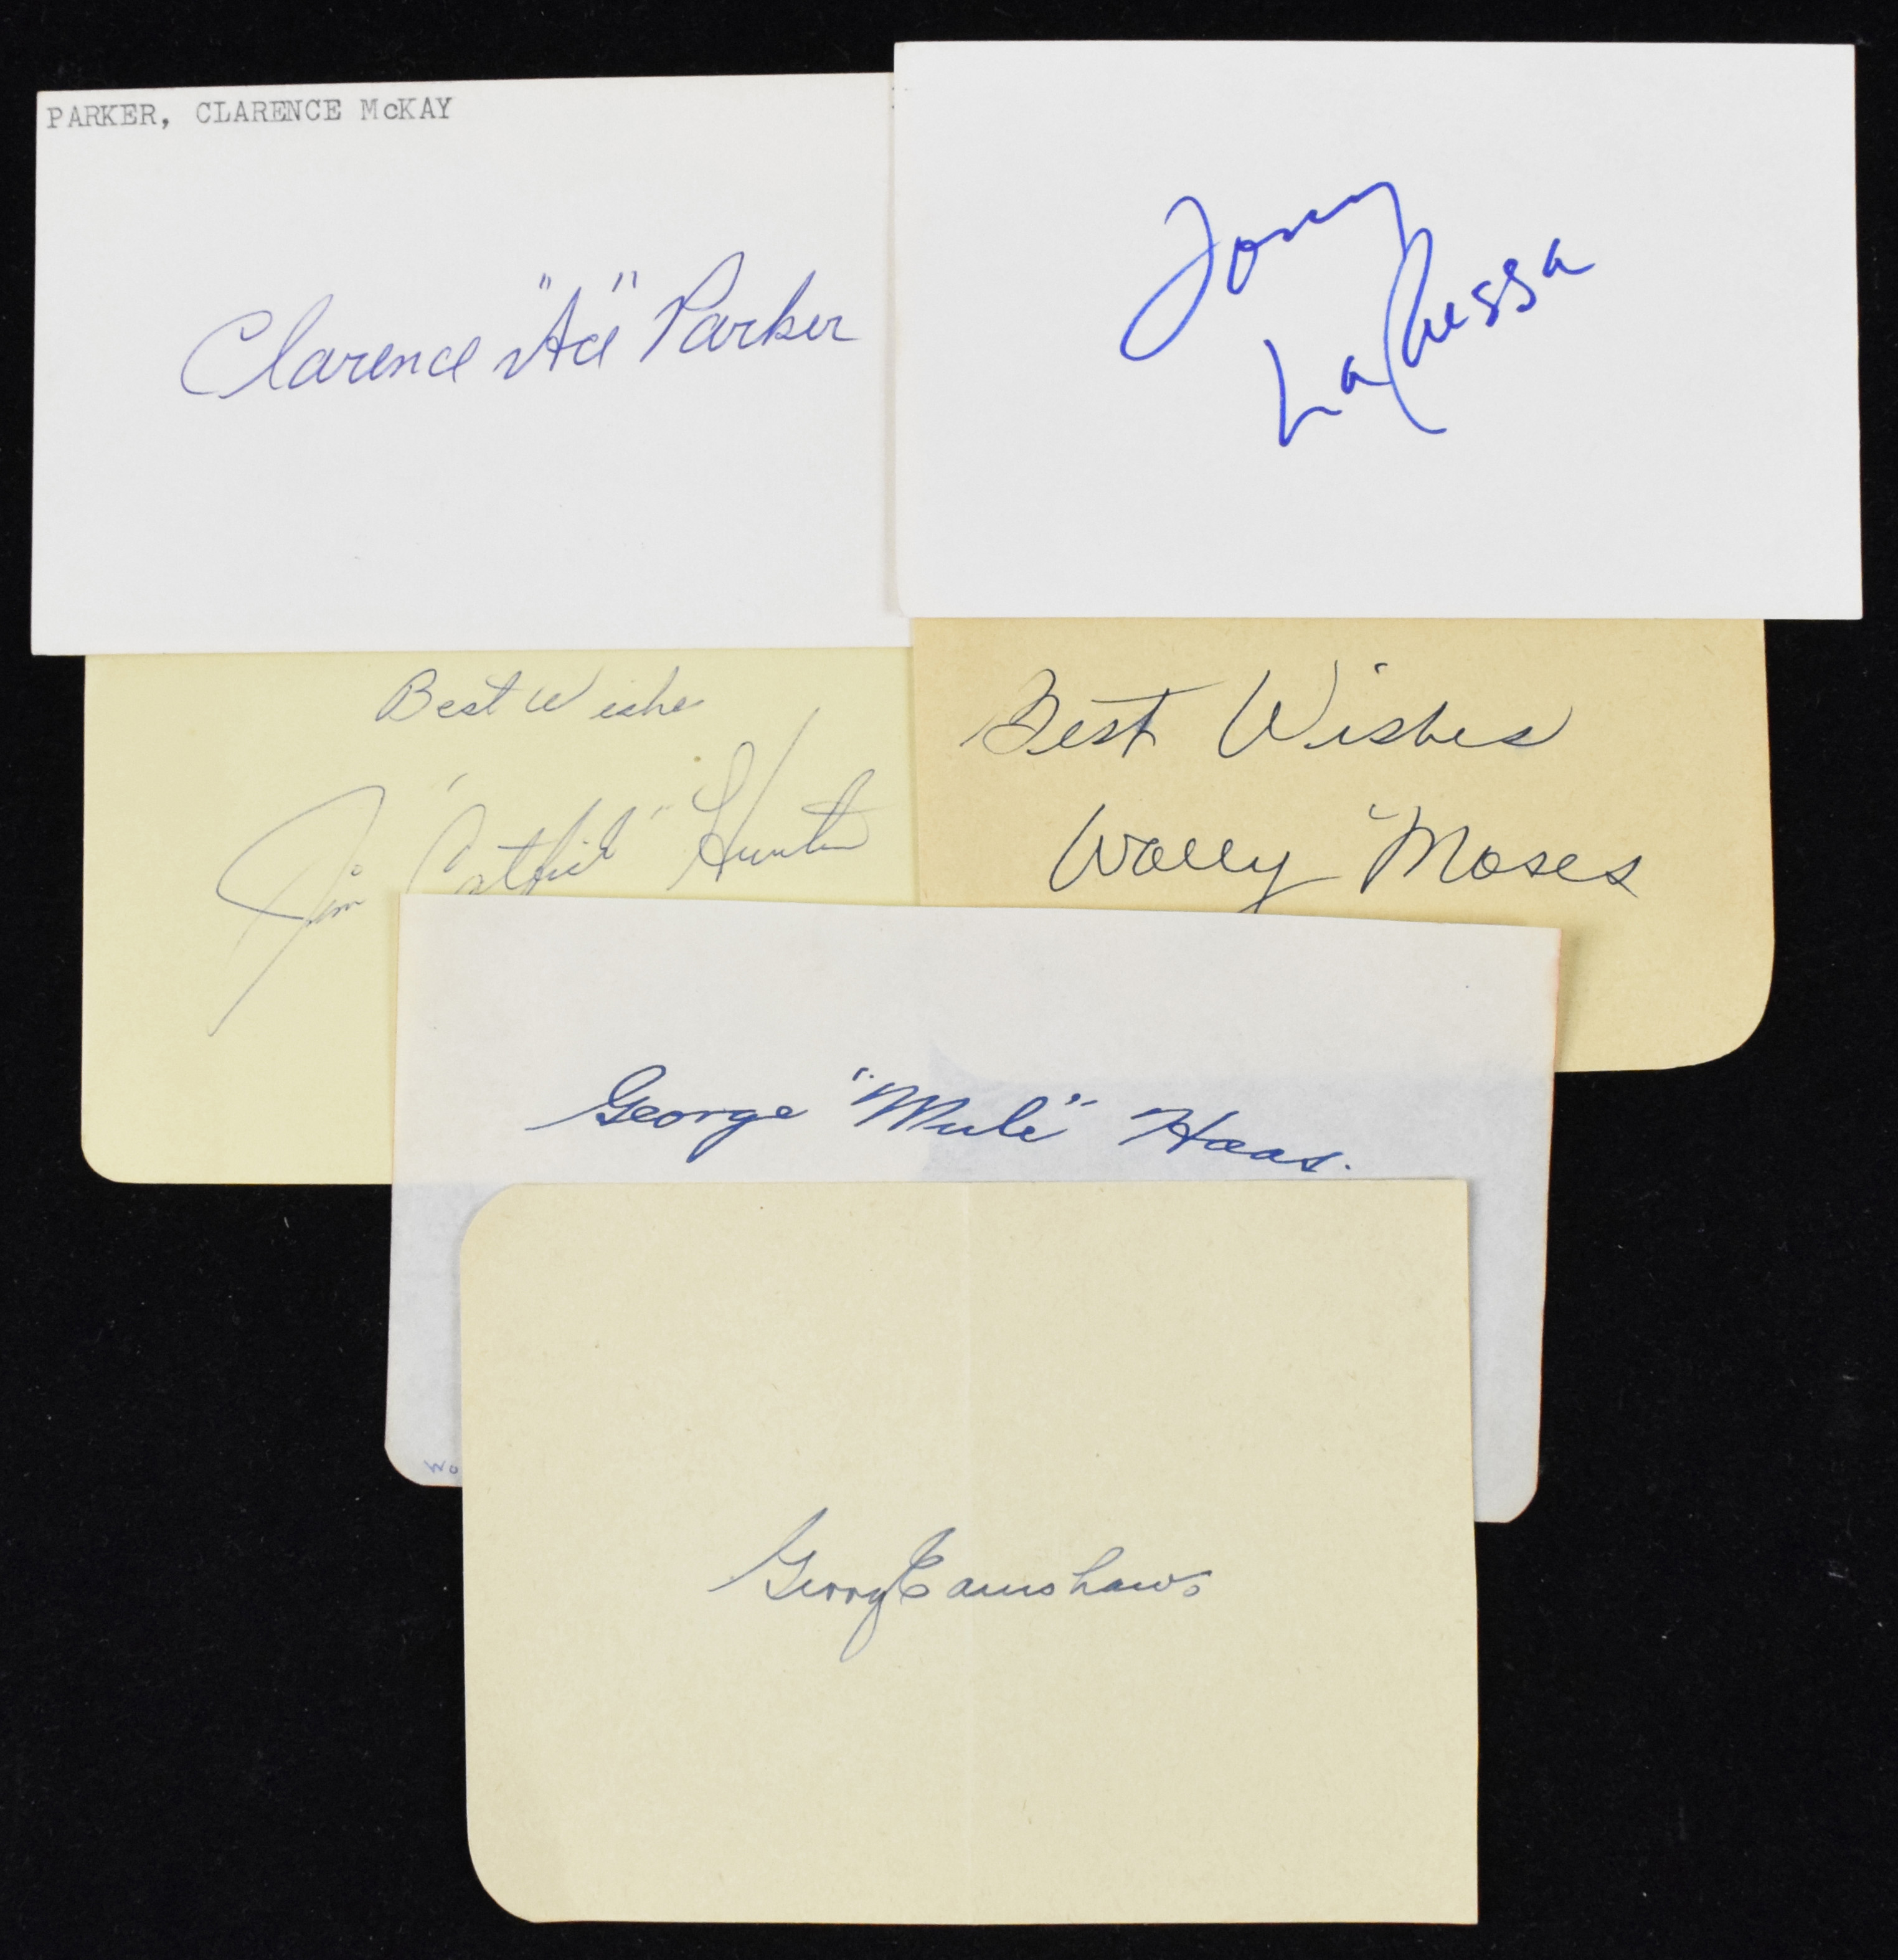 PARKER, CLARENCE McKAY
Clarence "Ace" Parker
Tony
LaRussa
Best Wishes
Jim "Catfish" Hunter
Best Wishes
Wally Moses
George "Mule" Haas.
Wo
George Earnshaw